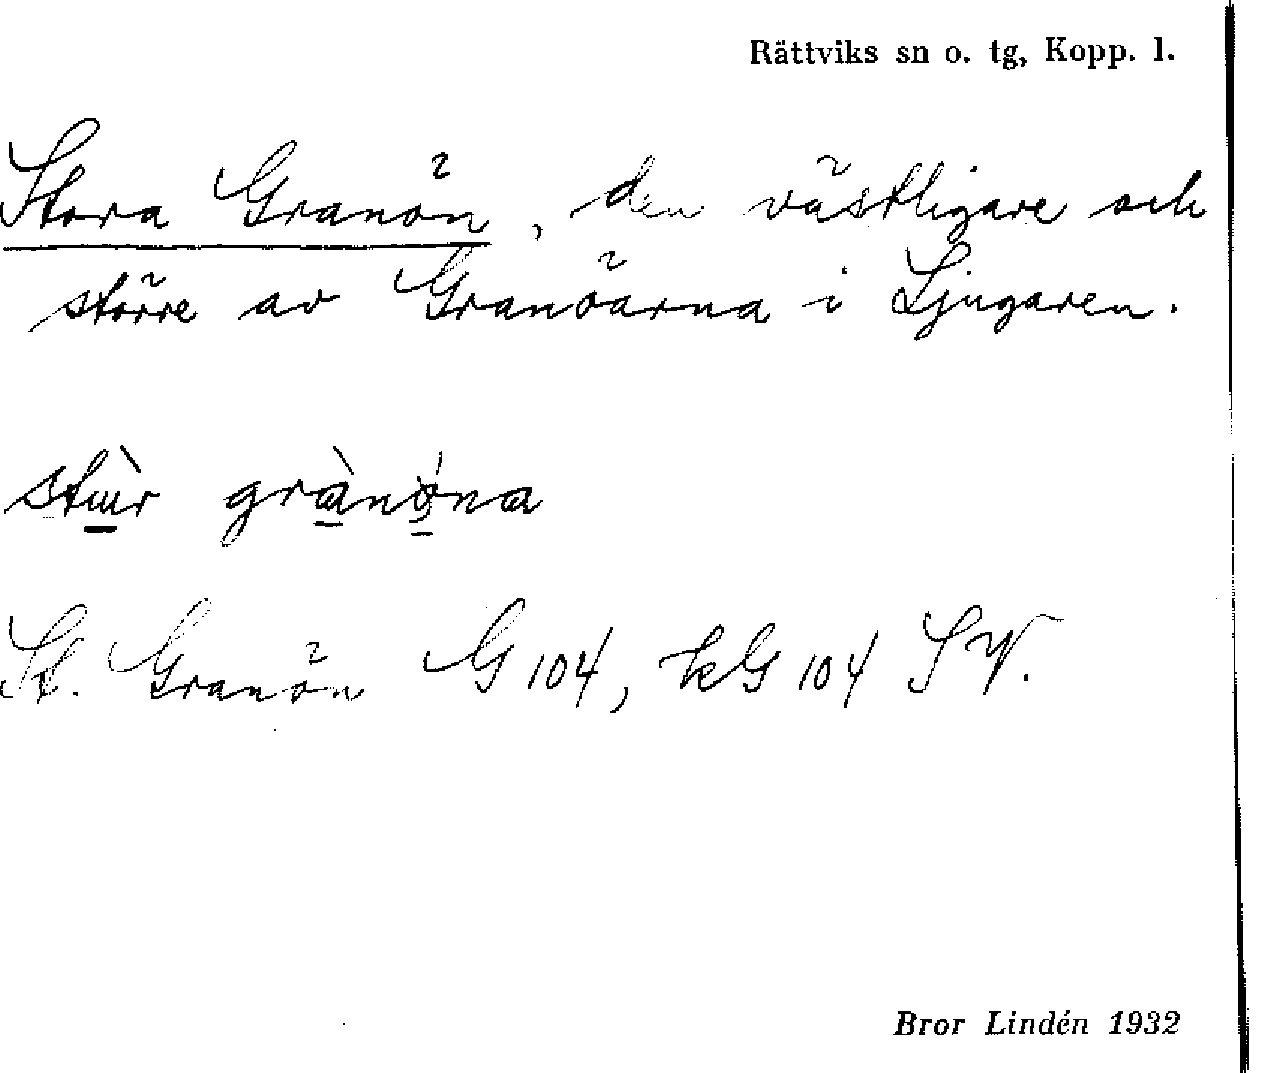 Rättviks sn o. tg, Kopp. l.
Stora Granön, den västligare och
större av Granöarna i Ljugaren.
St. Granön G 104, kG 104 SV.
Bror Lindén 1932